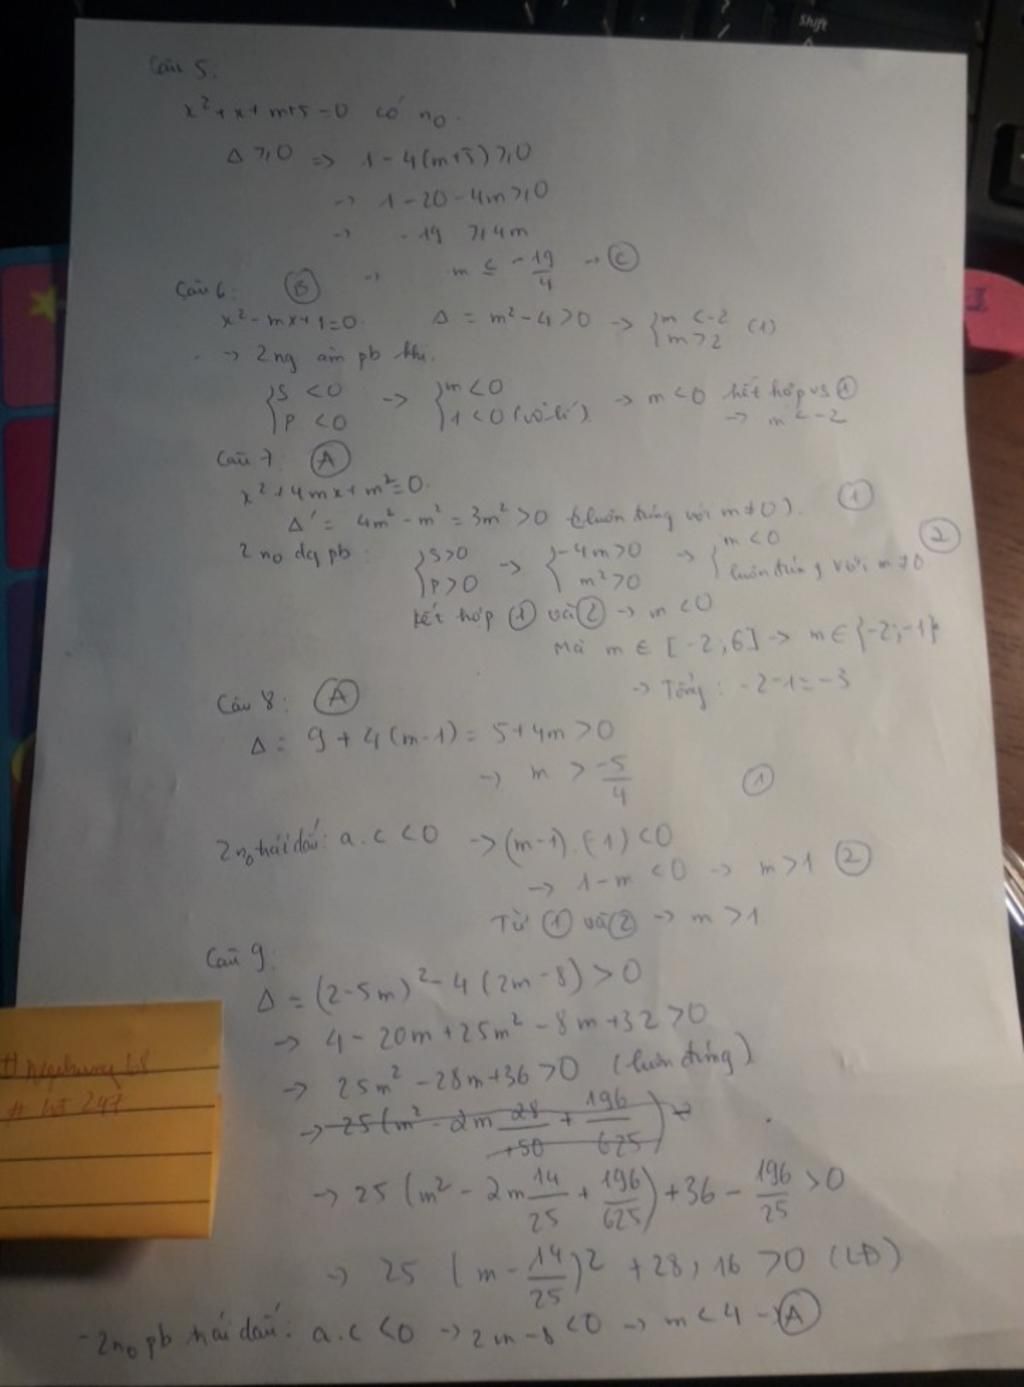 Shift
Câu 5.
x² + x + m+5 = 0 có n₀.
Δ ⩾ 0 => 1 - 4(m+5) ⩾ 0
-> 1 - 20 - 4m ⩾ 0
-> -19 ⩾ 4m
-> m ≤ -19/4 -> Ⓒ
Câu 6: Ⓑ
x² - mx + 1 = 0. Δ = m² - 4 > 0 -> { m < -2 m > 2 (1)
-> 2 ng âm pb khi.
{ S < 0 P < 0 -> { m < 0 1 < 0 (vô lí). -> m < 0 kết hợp vs ①
-> m < -2
Câu 7: Ⓐ
x² + 4mx + m² = 0.
Δ' = 4m² - m² = 3m² > 0 (luôn đúng với m ≠ 0). ①
2 n₀ dg pb: { S > 0 P > 0 -> { -4m > 0 m² > 0 -> { m < 0 luôn đúng với m ≠ 0 ②
Kết hợp ① và ② -> m < 0
Mà m ∈ [-2; 6] -> m ∈ {-2; -1}
-> Tổng: -2 - 1 = -3
Câu 8: Ⓐ
Δ = 9 + 4(m-1) = 5 + 4m > 0
-> m > -5/4 ①
2 n₀ trái dấu: a.c < 0 -> (m-1).(-1) < 0
-> 1 - m < 0 -> m > 1 ②
Từ ① và ② -> m > 1
Câu 9.
Δ = (2-5m)² - 4(2m-8) > 0
-> 4 - 20m + 25m² - 8m + 32 > 0
-> 25m² - 28m + 36 > 0 (luôn đúng)
-> 25(m² - 2m 28/50 + 196/625)
-> 25(m² - 2m 14/25 + 196/625) + 36 - 196/25 > 0
-> 25(m - 14/25)² + 28,16 > 0 (LĐ)
- 2 n₀ pb trái dấu: a.c < 0 -> 2m - 8 < 0 -> m < 4 -> Ⓐ